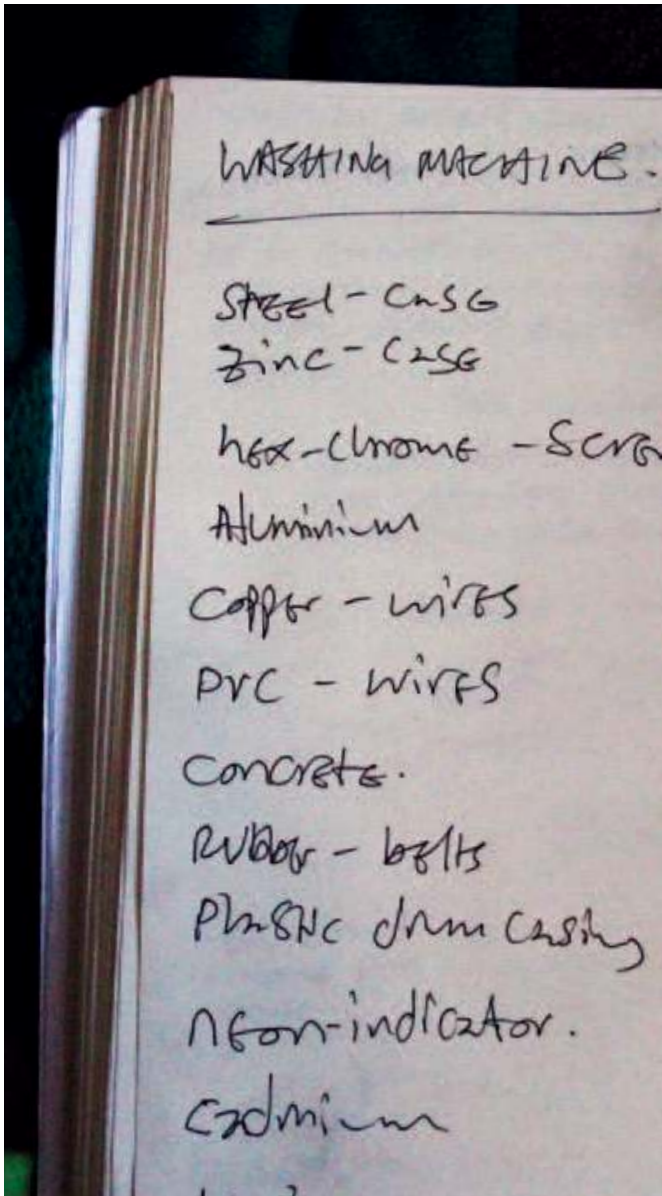 WASHING MACHINE.
Steel - Case
Zinc - Case
hex-chrome - Scre
Aluminium
Copper - wires
PVC - wires
Concrete.
Rubber - belts
Plastic drum casing
neon-indicator.
Cadmium